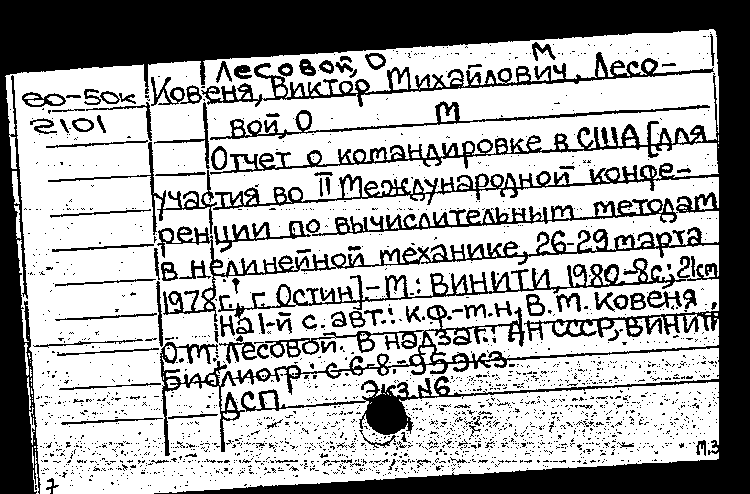 Лесовой, О М
80-50к Ковеня, Виктор Михайлович, Лесо-
2101 вой, О М
Отчет о командировке в США [для
участия во II Международной конфе-
ренции по вычислительным методам
в нелинейной механике, 26-29 марта
1978г., г. Остин].-М.: ВИНИТИ, 1980.-8с.; 21см
На 1-й с. авт.: к.ф.-м.н. В.М. Ковеня,
О.М. Лесовой. В надзаг.: АН СССР, ВИНИТИ
Библиогр.: с. 6-8.-95экз.
ДСП. Экз.N6.
м.з
7